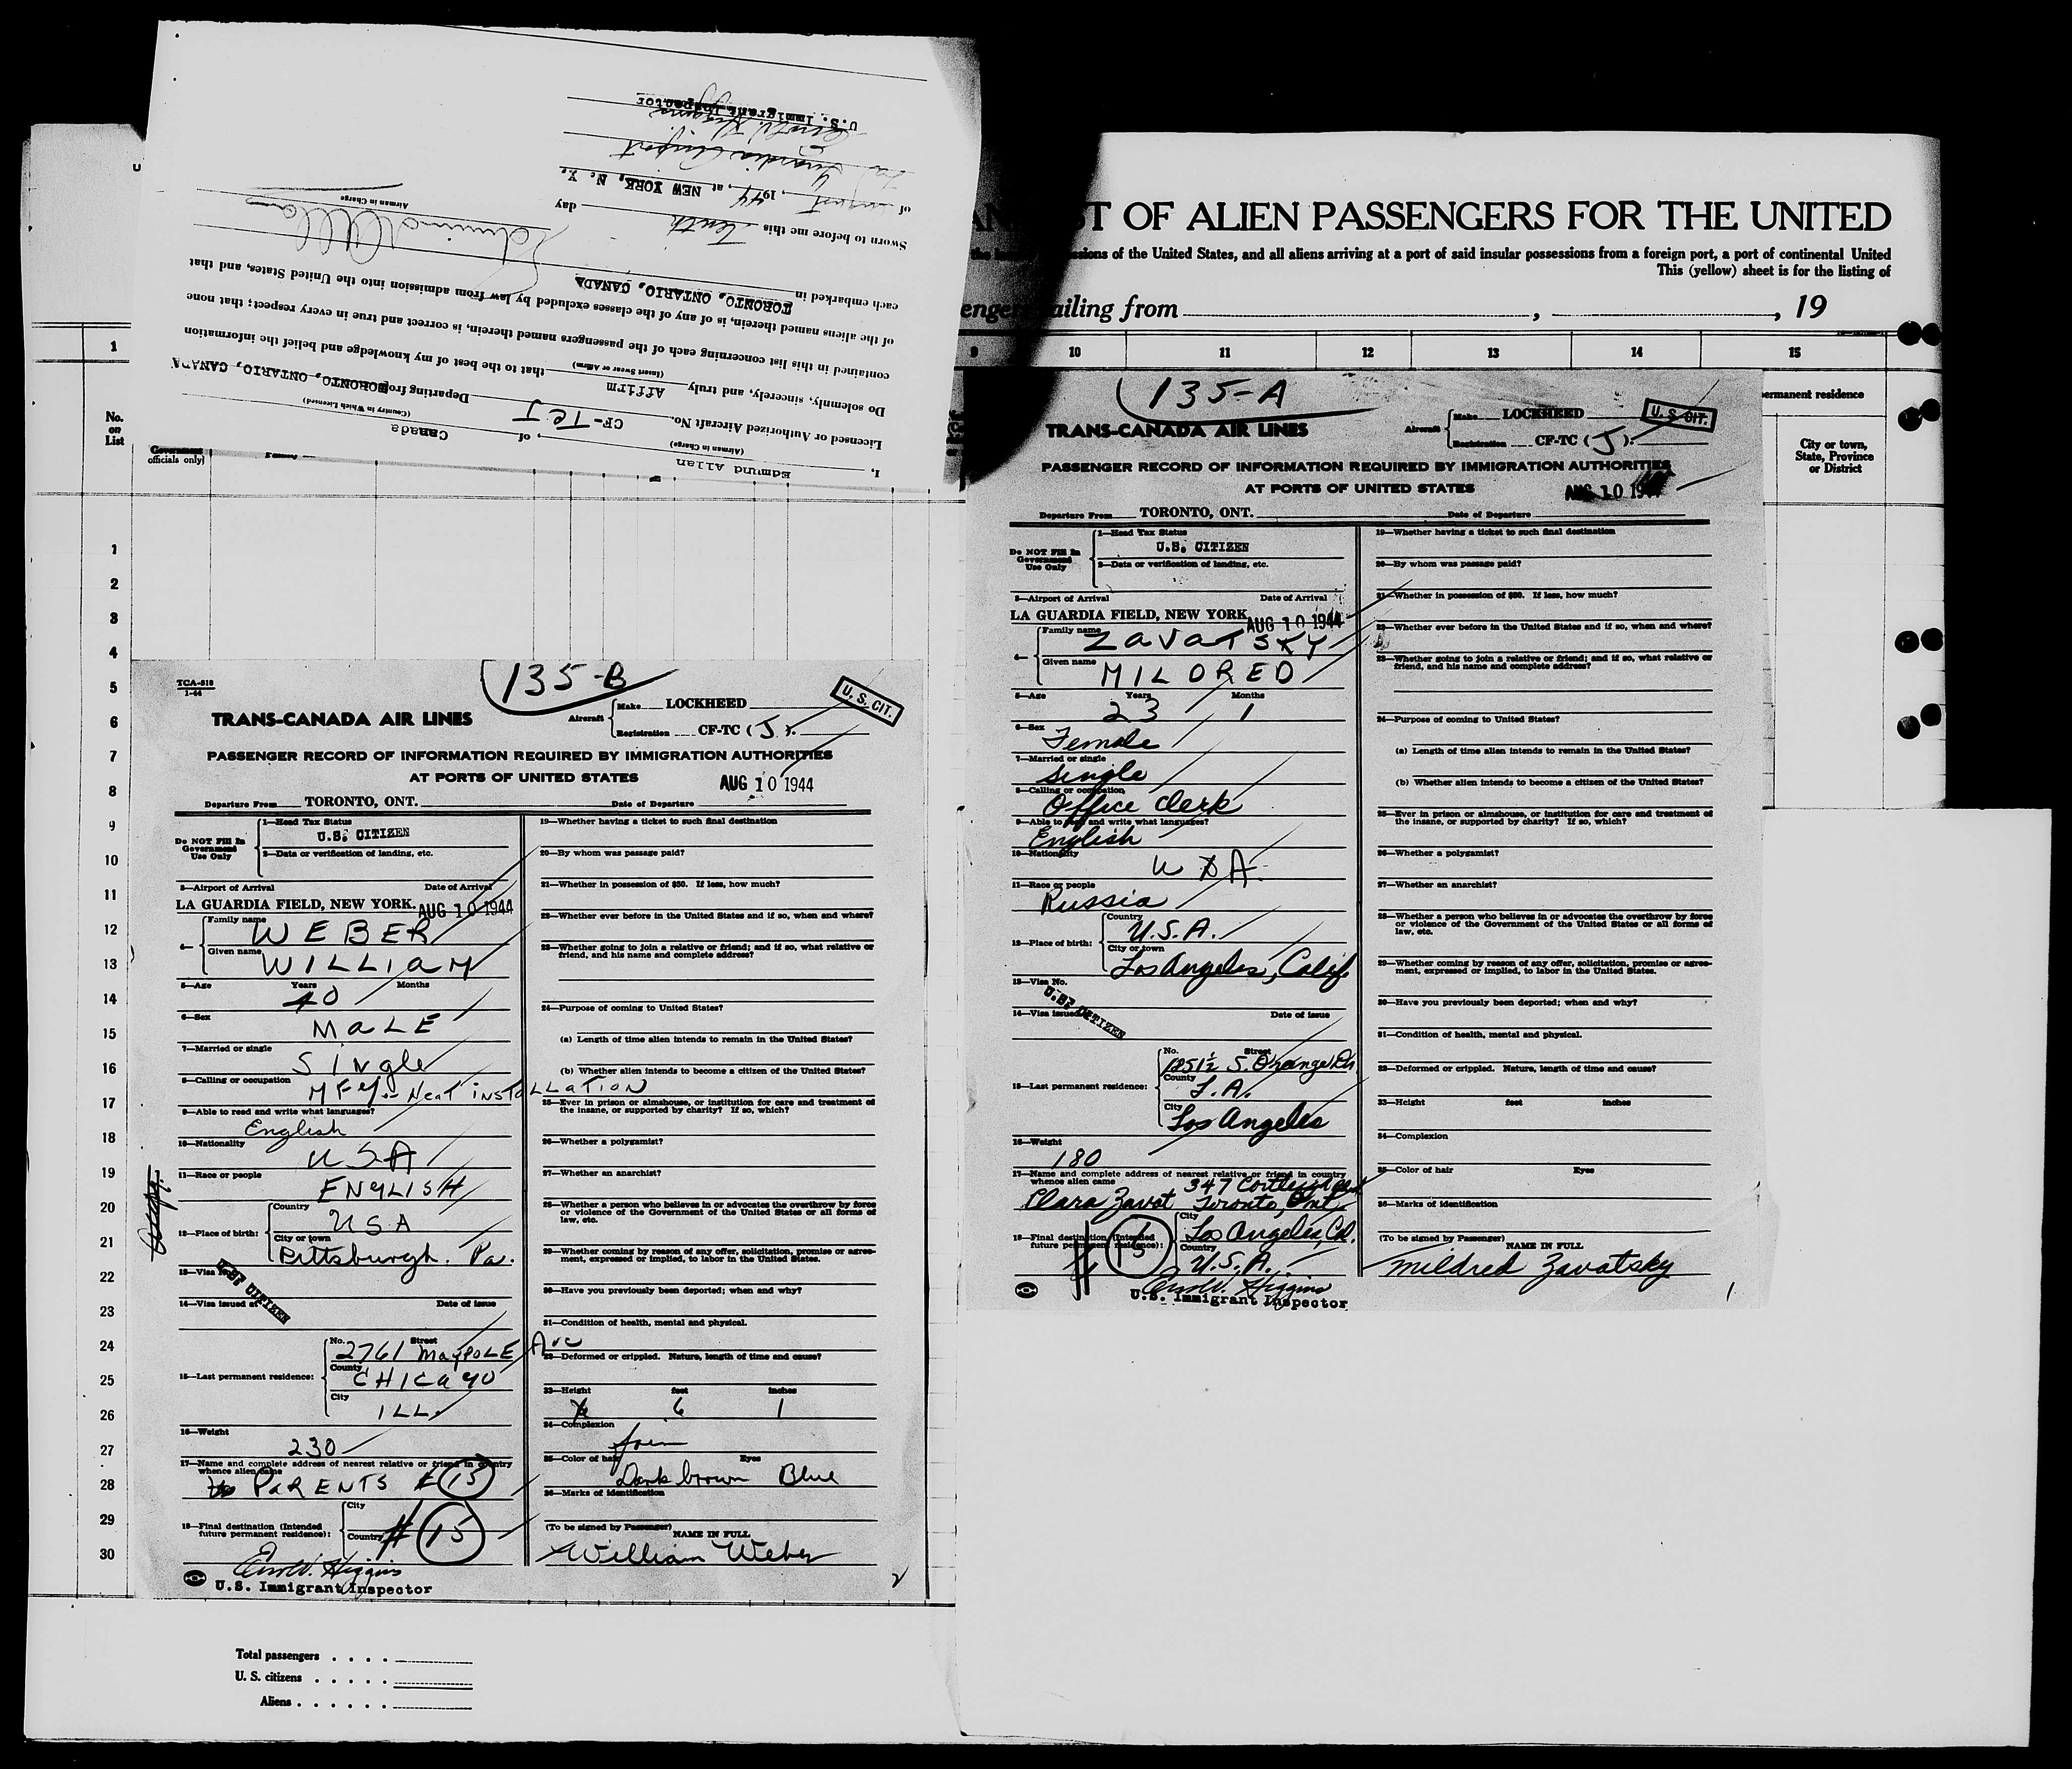 I, Edmund Allan
(Airman in Charge)
Licensed or Authorized Aircraft No. CF-TCJ, of Canada
(Country in Which Licensed)
Departing from TORONTO, ONTARIO, CANADA
Do solemnly, sincerely, and truly Affirm that to the best of my knowledge and belief the information
(Insert Swear or Affirm)
contained in this list concerning each of the passengers named therein, is correct and true in every respect; that none
of the aliens named therein, is of any of the classes excluded by law from admission into the United States, and that
each embarked in TORONTO, ONTARIO, CANADA
Edmund Allan
Airman in Charge
Sworn to before me this Tenth day
of August, 1944, at NEW YORK, N. Y.
La Guardia Airport
U.S. Immigrant Inspector
T OF ALIEN PASSENGERS FOR THE UNITED
ssions of the United States, and all aliens arriving at a port of said insular possessions from a foreign port, a port of continental United
This (yellow) sheet is for the listing of
enger sailing from , , 19
1
9 10 11 12 13 14 15
No.
on
List
Government
officials only)
ermanent residence
City or town,
State, Province
or District
1
2
3
4
5
6
7
8
9
10
11
12
13
14
15
16
17
18
19
20
21
22
23
24
25
26
27
28
29
30
Total passengers . . . .
U. S. citizens . . . . .
Aliens . . . . . .
TCA-518
1-44
135-B
U. S. CIT.
TRANS-CANADA AIR LINES
Aircraft Make LOCKHEED
Registration CF-TC (J).
PASSENGER RECORD OF INFORMATION REQUIRED BY IMMIGRATION AUTHORITIES
AT PORTS OF UNITED STATES AUG 10 1944
Departure From TORONTO, ONT. Date of Departure
Do NOT Fill In
Government
Use Only
1—Head Tax Status
U.S. CITIZEN
2—Data or verification of landing, etc.
3—Airport of Arrival Date of Arrival
LA GUARDIA FIELD, NEW YORK. AUG 10 1944
4— Family name WEBER
Given name WILLIAM
5—Age Years Months
40
6—Sex
MALE
7—Married or single
SINgle
8—Calling or occupation
MFg. - Heat installation
9—Able to read and write what languages?
English
10—Nationality
USA
11—Race or people
ENgLISH
12—Place of birth: Country USA
City or town
Pittsburgh. Pa.
13—Visa No.
U.S. CITIZEN
14—Visa issued at Date of issue
15—Last permanent residence:
No. Street
2761 MayPOLE Ave
County
CHICago
City
ILL.
16—Weight
230
17—Name and complete address of nearest relative or friend in country
whence alien came
PaRENTS # 15
18—Final destination (Intended
future permanent residence):
City
Country # 15
U.S. Immigrant Inspector
19—Whether having a ticket to such final destination
20—By whom was passage paid?
21—Whether in possession of $50. If less, how much?
22—Whether ever before in the United States and if so, when and where?
23—Whether going to join a relative or friend; and if so, what relative or
friend, and his name and complete address?
24—Purpose of coming to United States?
(a) Length of time alien intends to remain in the United States?
(b) Whether alien intends to become a citizen of the United States?
25—Ever in prison or almshouse, or institution for care and treatment of
the insane, or supported by charity? If so, which?
26—Whether a polygamist?
27—Whether an anarchist?
28—Whether a person who believes in or advocates the overthrow by force
or violence of the Government of the United States or all forms of
law, etc.
29—Whether coming by reason of any offer, solicitation, promise or agree-
ment, expressed or implied, to labor in the United States.
30—Have you previously been deported; when and why?
31—Condition of health, mental and physical.
32—Deformed or crippled. Nature, length of time and cause?
33—Height feet inches
6 1
34—Complexion
fair
35—Color of hair Eyes
Dark brown Blue
36—Marks of identification
(To be signed by Passenger)
NAME IN FULL
William Weber
2
135-A
U. S. CIT.
TRANS-CANADA AIR LINES
Aircraft Make LOCKHEED
Registration CF-TC (J).
PASSENGER RECORD OF INFORMATION REQUIRED BY IMMIGRATION AUTHORITIES
AT PORTS OF UNITED STATES AUG 10 1944
Departure From TORONTO, ONT. Date of Departure
Do NOT Fill In
Government
Use Only
1—Head Tax Status
U.S. CITIZEN
2—Data or verification of landing, etc.
3—Airport of Arrival Date of Arrival
LA GUARDIA FIELD, NEW YORK AUG 10 1944
4— Family name ZAVATSKY
Given name MILDRED
5—Age Years Months
23 1
6—Sex
Female
7—Married or single
Single
8—Calling or occupation
Office clerk
9—Able to read and write what languages?
English
10—Nationality
USA
11—Race or people
Russia
12—Place of birth: Country
U.S.A.
City or town
Los Angeles, Calif
13—Visa No.
U.S. CITIZEN
14—Visa issued Date of issue
15—Last permanent residence:
No. Street
1251½ S. Orange Dr
County
L.A.
City
Los Angeles
16—Weight
180
17—Name and complete address of nearest relative or friend in country
whence alien came 347 Cortleigh
Clara Zavot Toronto, Ont.
18—Final destination (Intended
future permanent residence):
City
Los Angeles, Cal.
Country
U.S.A.
# 15
U.S. Immigrant Inspector
19—Whether having a ticket to such final destination
20—By whom was passage paid?
21—Whether in possession of $50. If less, how much?
22—Whether ever before in the United States and if so, when and where?
23—Whether going to join a relative or friend; and if so, what relative or
friend, and his name and complete address?
24—Purpose of coming to United States?
(a) Length of time alien intends to remain in the United States?
(b) Whether alien intends to become a citizen of the United States?
25—Ever in prison or almshouse, or institution for care and treatment of
the insane, or supported by charity? If so, which?
26—Whether a polygamist?
27—Whether an anarchist?
28—Whether a person who believes in or advocates the overthrow by force
or violence of the Government of the United States or all forms of
law, etc.
29—Whether coming by reason of any offer, solicitation, promise or agree-
ment, expressed or implied, to labor in the United States.
30—Have you previously been deported; when and why?
31—Condition of health, mental and physical.
32—Deformed or crippled. Nature, length of time and cause?
33—Height feet inches
34—Complexion
35—Color of hair Eyes
36—Marks of identification
(To be signed by Passenger)
NAME IN FULL
Mildred Zavatsky
1